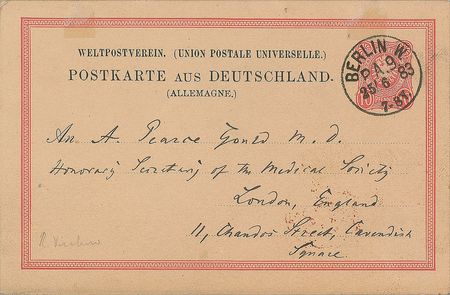 WELTPOSTVEREIN. (UNION POSTALE UNIVERSELLE.)
POSTKARTE AUS DEUTSCHLAND.
(ALLEMAGNE.)
BERLIN W.
P.A.9.
25 6 83
7-8N.
10
An A. Pearce Gould M. D.
Honorary Secretary of the Medical Society
London, England
11, Chandos Street, Cavendish
Square.
R. Virchow